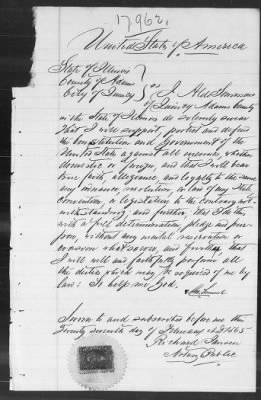 17962.
United State of America
State of Illinois
County of Adams
City of Quincy } ss I. Aldo Simmons
of Quincy Adams County
in the State of Illinois do solemly swear
that I will support, protect and defend
the Constitution and Government of the
United States against all enemies, whether
domestic or foreign, and that I will bear
true faith, allegiance, and loyalty to the same
any ordinance, resolution or law of any State,
Convention, or legislature to the contrary not-
withstanding, and further, that I do this
with a full determination, pledge and pur-
pose, without any mental reservation or
evasion whatsoever, and further that
I will well and faithfully perform all
the duties which may be required of me by
law: So help me God.
Sworn to and subscribed before me this
Twenty seventh day of February A.D. 1865
Richard Jansen
Notary Public